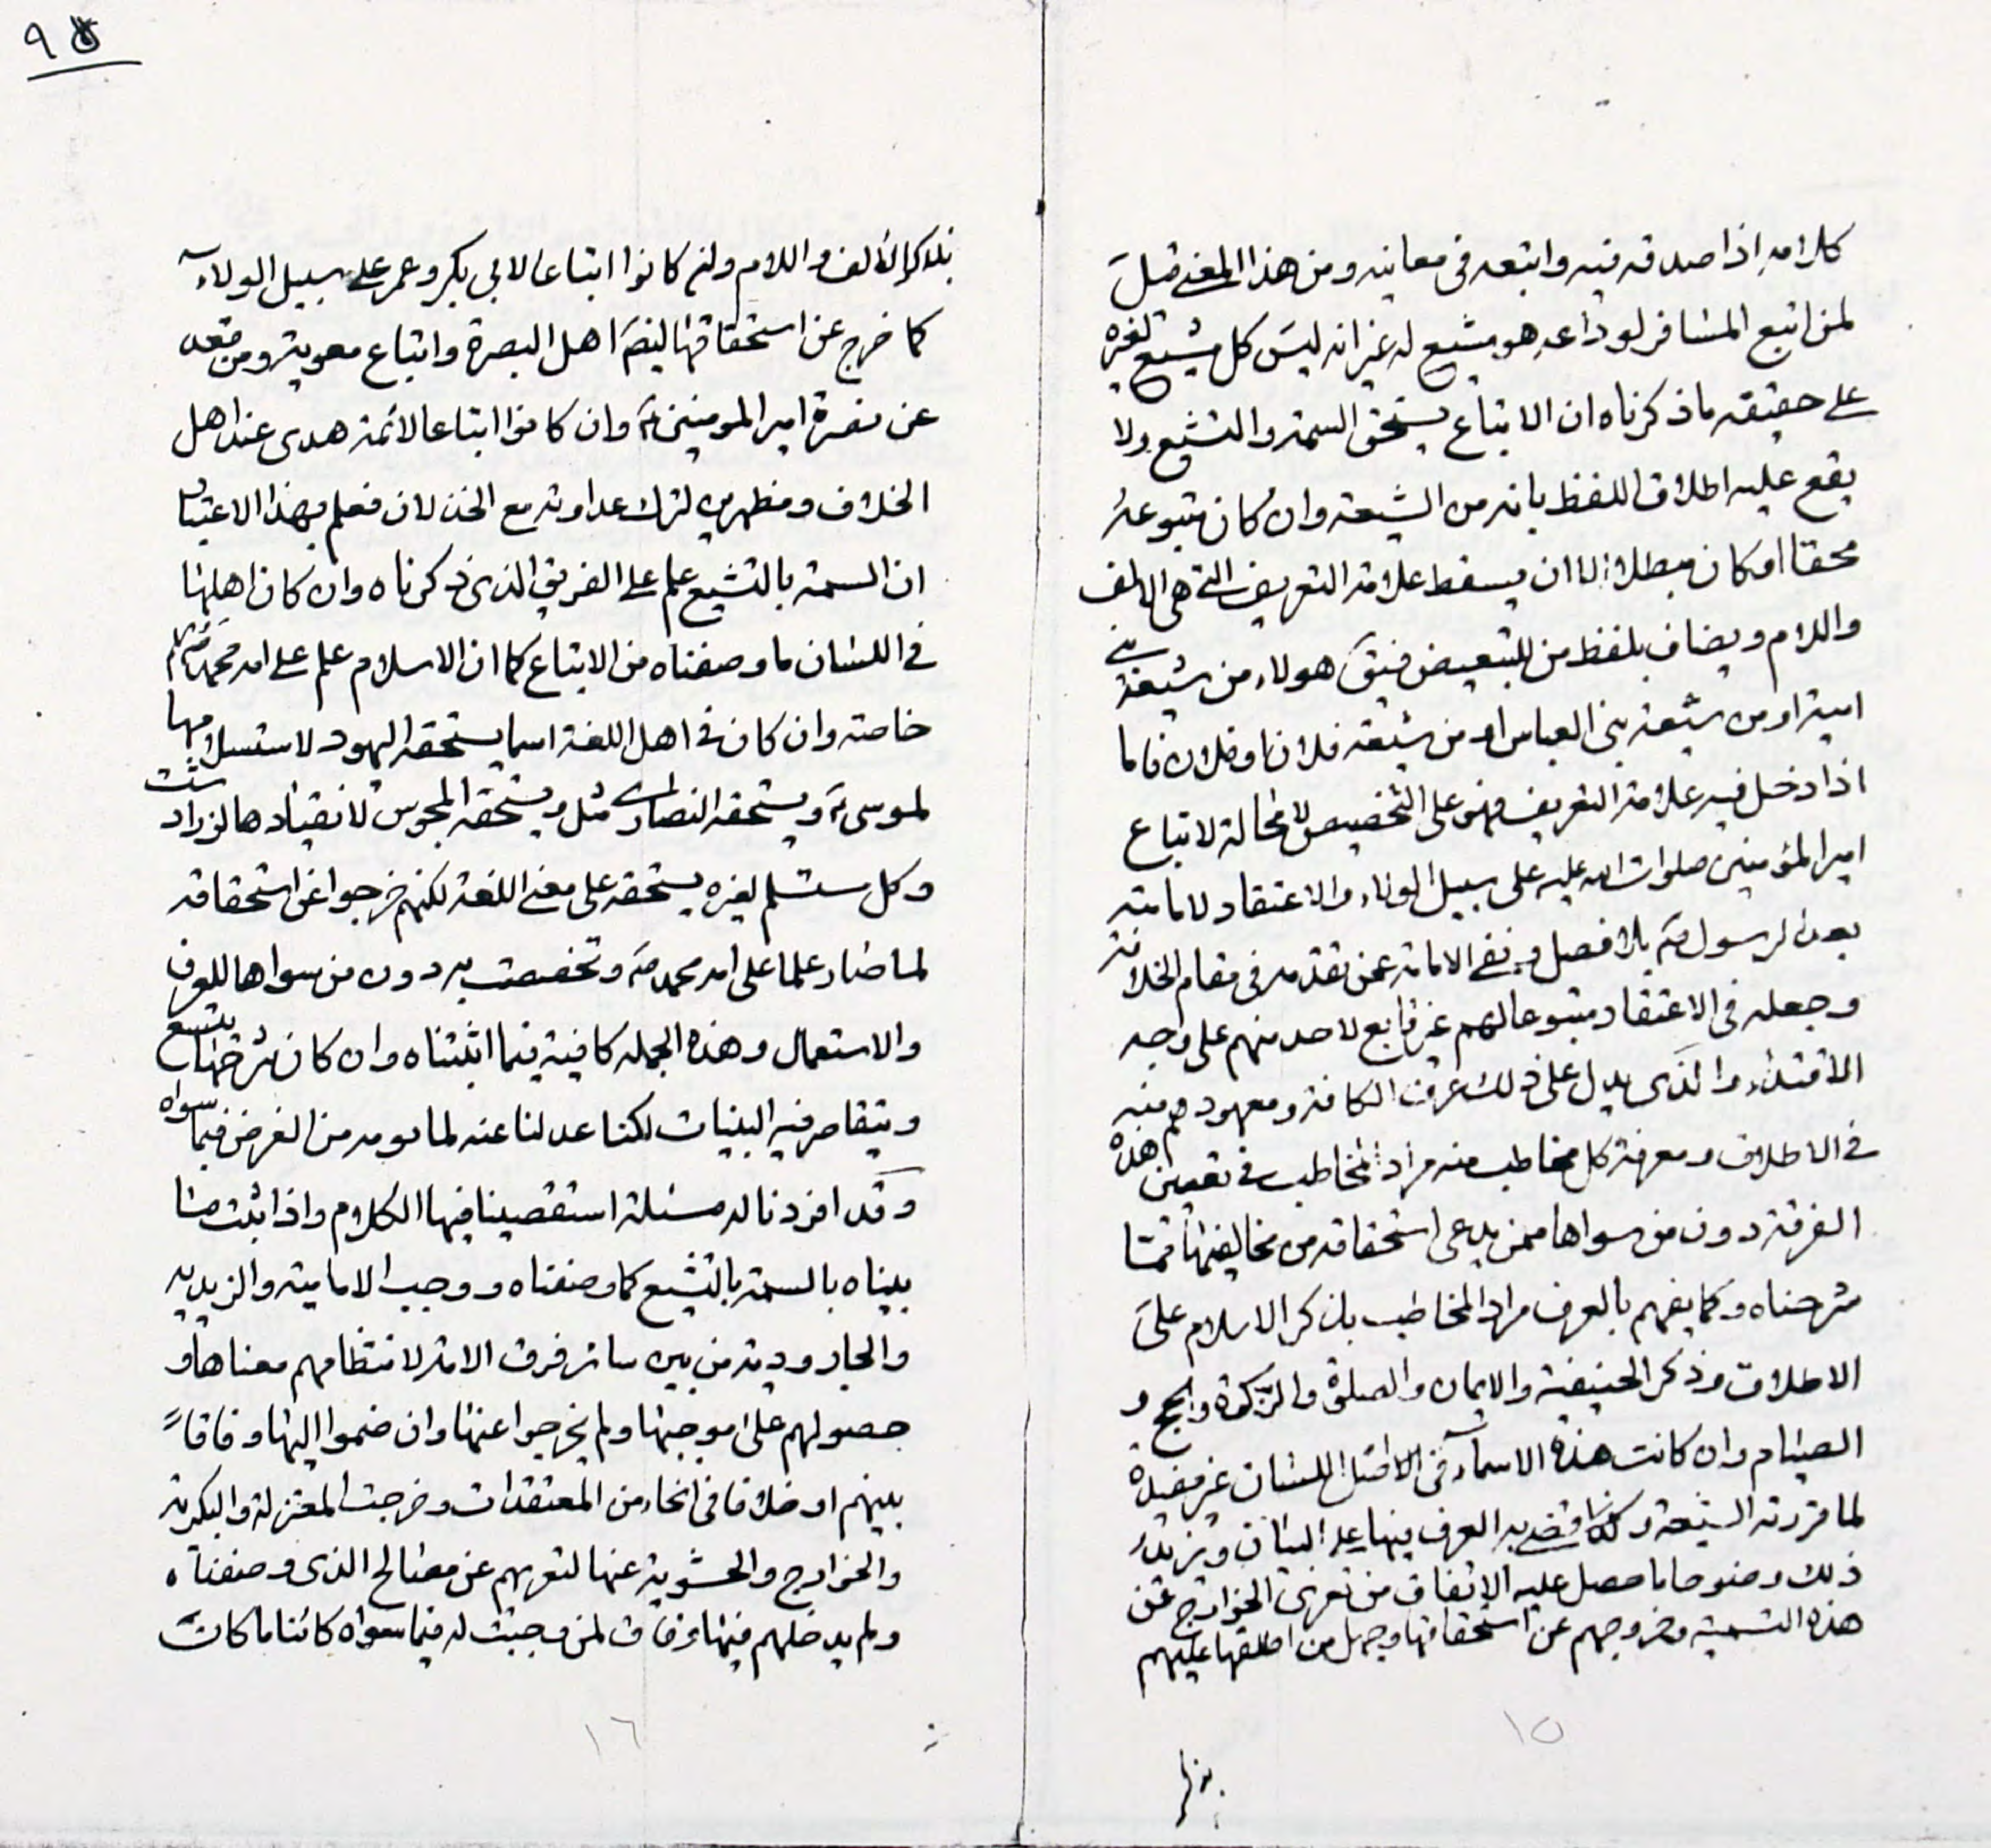 ٩٥
كلامه اذا صدقه فيه واتبعه فى معانيه ومن هذا المعنى قيل
لمن اتبع المسافر لوداعه هو مشيع له غير انه ليس كل مشيع لغيره
على حقيقه ما ذكرناه ان الاتباع يستحق السمة والتشيع ولا
يقع عليه اطلاق اللفظ بانه من الشيعة وان كان متبوعه
محقا او كان مبطلا الا ان يسقط علامة التعريف التى هى الالف
واللام ويضاف بلفظ من للتبعيض فيق هولاء من شيعة بنى
امية او من شيعة بنى العباس او من شيعة فلان او فلان فاما
اذا دخل فيه علامة التعريف فهو على التخصيص لا محالة لاتباع
امير المؤمنين صلوات الله عليه على سبيل الولاء والاعتقاد لامامته
بعد الرسول ص بلا فصل ونفى الامامة عمن تقدمه فى مقام الخلافة
وجعله فى الاعتقاد متبوعا لهم غير تابع لاحد منهم على وجه
الاقتداء والذى يدل على ذلك عرف الكافة ومعهودهم منه
فى الاطلاق ومعرفة كل مخاطب منه مراد المخاطب فى تعيين هذه
الفرقة دون من سواها ممن يدعى استحقاقه من مخالفيها مما
شرحناه وكما يفهم بالعرف مراد المخاطب بذكر الاسلام على
الاطلاق وذكر الحنيفية والايمان والصلوة والزكوة والحج و
الصيام وان كانت هذه الاسماء فى الاصل اللسان غير مفيدة
لما قررته الشيعة وكذا قضى به العرف فيها على البيان ويزيد
ذلك وضوحا ما حصل عليه الاتفاق من تعرى الخوارج عن
هذه التسمية وخروجهم عن استحقاقها وجهل من اطلقها عليهم
بذكر
١٥
بذكر الالف واللام وان كانوا اتباعا لابى بكر وعمر على سبيل الولاء
كما خرج عن استحقاقها ايضا اهل البصرة واتباع معوية ومن قعد
عن نصرة امير المومنين ع وان كانوا اتباعا لائمة هدى عند اهل
الخلاف ومظهرين لترك عداوته مع الخذلان فعلم بهذا الاعتبار
ان السمة بالتشيع علم على الفريق الذى ذكرناه وان كان اهلها
فى اللسان ما وصفناه من الاتباع كما ان الاسلام علم على امة محمد ص
خاصة وان كان فى اهل اللغة اسما يستحقه اليهود لاستسلامها
لموسى ع ويستحقه النصارى مثل ويستحقه المجوس لانقيادها لزرادشت
وكل مستسلم لغيره يستحقه على معنى اللغة لكنهم خرجوا عن استحقاقه
لما صار علما على امة محمد ص وتخصصت به دون من سواها للعرف
والاستعمال وهذه الجملة كافية فيما اثبتناه وان كان شرحها يتسع
ويتقاصر فيه البينات لكنا عدلنا عنه لما نومه من الغرض فيما سواه
وقد افردنا له مسئلة استقصينا فيها الكلام واذا ثبت ما
بيناه بالسمة بالتشيع كما وصفناه ووجب الامامية والزيدية
والجارودية من بين سائر فرق الامة لانتظامهم معناها و
حصولهم على موجبها ولم يخرجوا عنها وان ضموا اليها وفاقا
بينهم او خلافا فى انحاء من المعتقدات وخرجت المعتزلة والبكرية
والخوارج والحشوية عنها لتعريهم عن معنا الذى وصفناه
ولم يدخلهم فيها وفاق لمن وجبت له فيما سواه كائنا ما كان
١٦